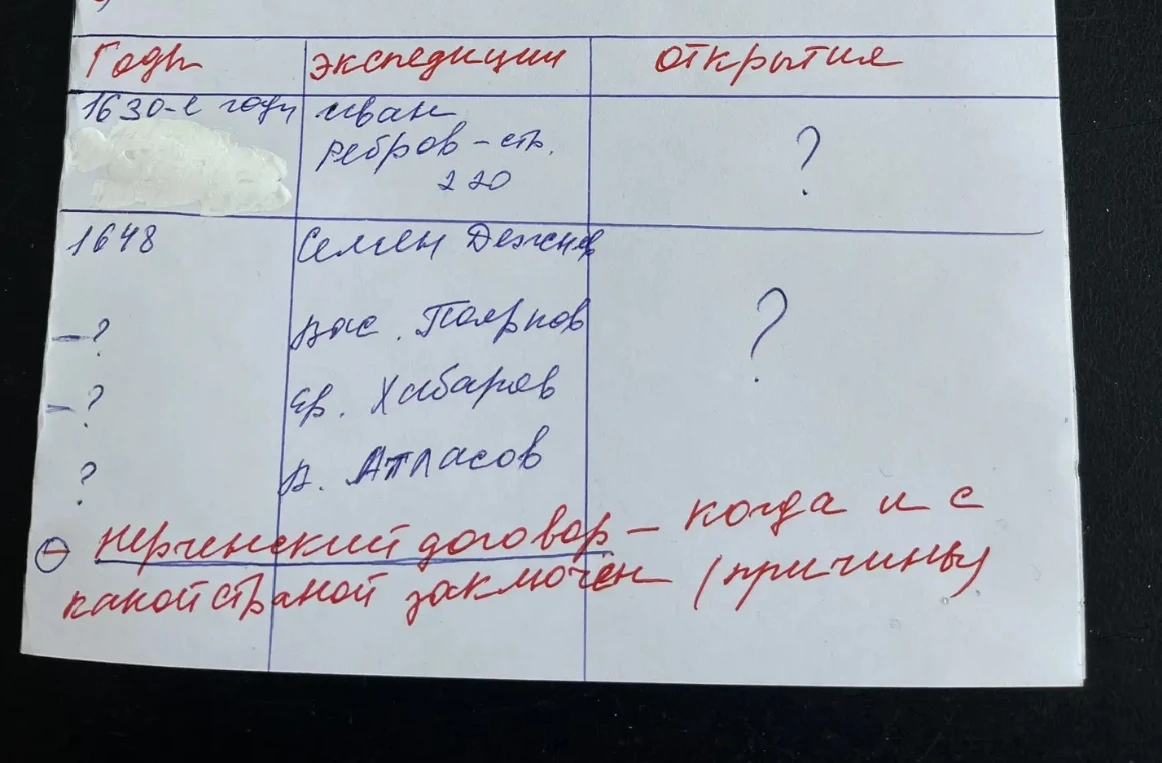 Годы экспедиции открытия
1630-е годы Иван
Ребров – стр.
220
?
1648 Семён Дежнёв
– ? Вас. Поярков
?
– ? Ер. Хабаров
? В. Атласов
Нерчинский договор – когда и с
какой страной заключён (причины)